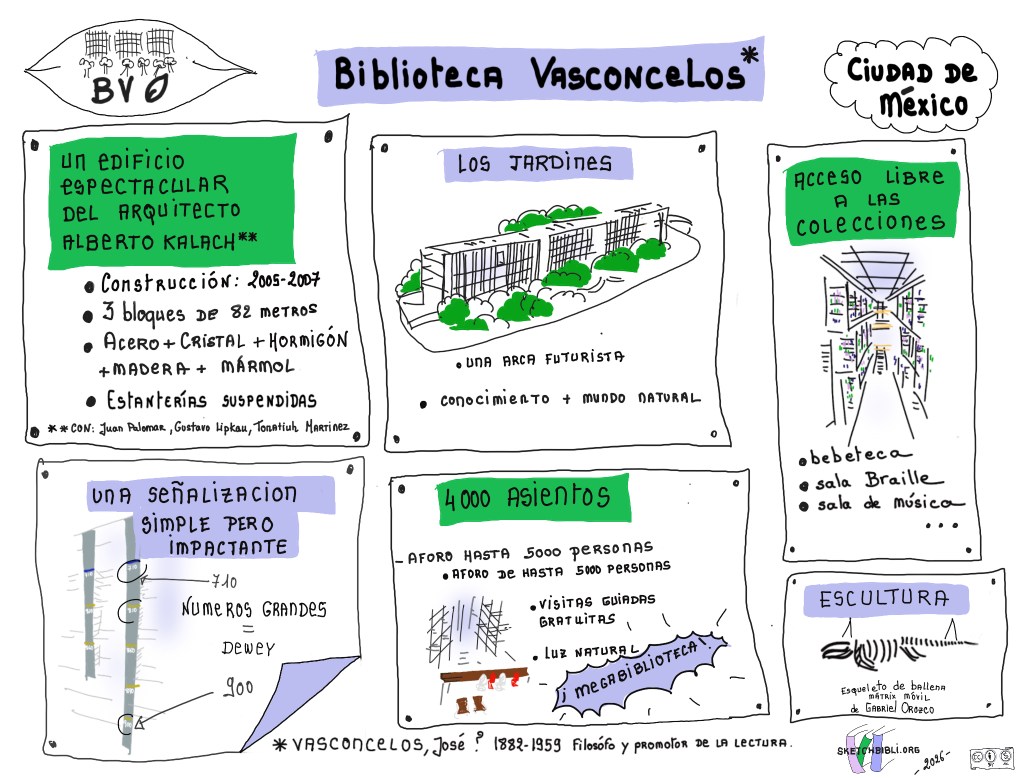 BVO
Biblioteca Vasconcelos*
Ciudad de
México
un edificio
espectacular
del arquitecto
Alberto Kalach**
• Construcción: 2005-2007
• 3 bloques de 82 metros
• Acero + Cristal + Hormigón
+ madera + mármol
• Estanterías suspendidas
** con: Juan Palomar, Gustavo Lipkau, Tonatiuh Martinez
Los jardines
• una arca futurista
• conocimiento + mundo natural
Acceso libre
a las
colecciones
• bebeteca
• sala Braille
• sala de música
...
una señalizacion
simple pero
impactante
710
Números grandes
=
Dewey
900
4000 Asientos
- Aforo hasta 5000 personas
• Aforo de hasta 5000 personas
• Visitas guiadas
gratuitas
• Luz natural
¡Megabiblioteca!
Escultura
Esqueleto de ballena
mátrix móvil
de Gabriel Orozco
* Vasconcelos, José : 1882-1959 Filosófo y promotor de la lectura.
sketchbibli.org
- 2026 -